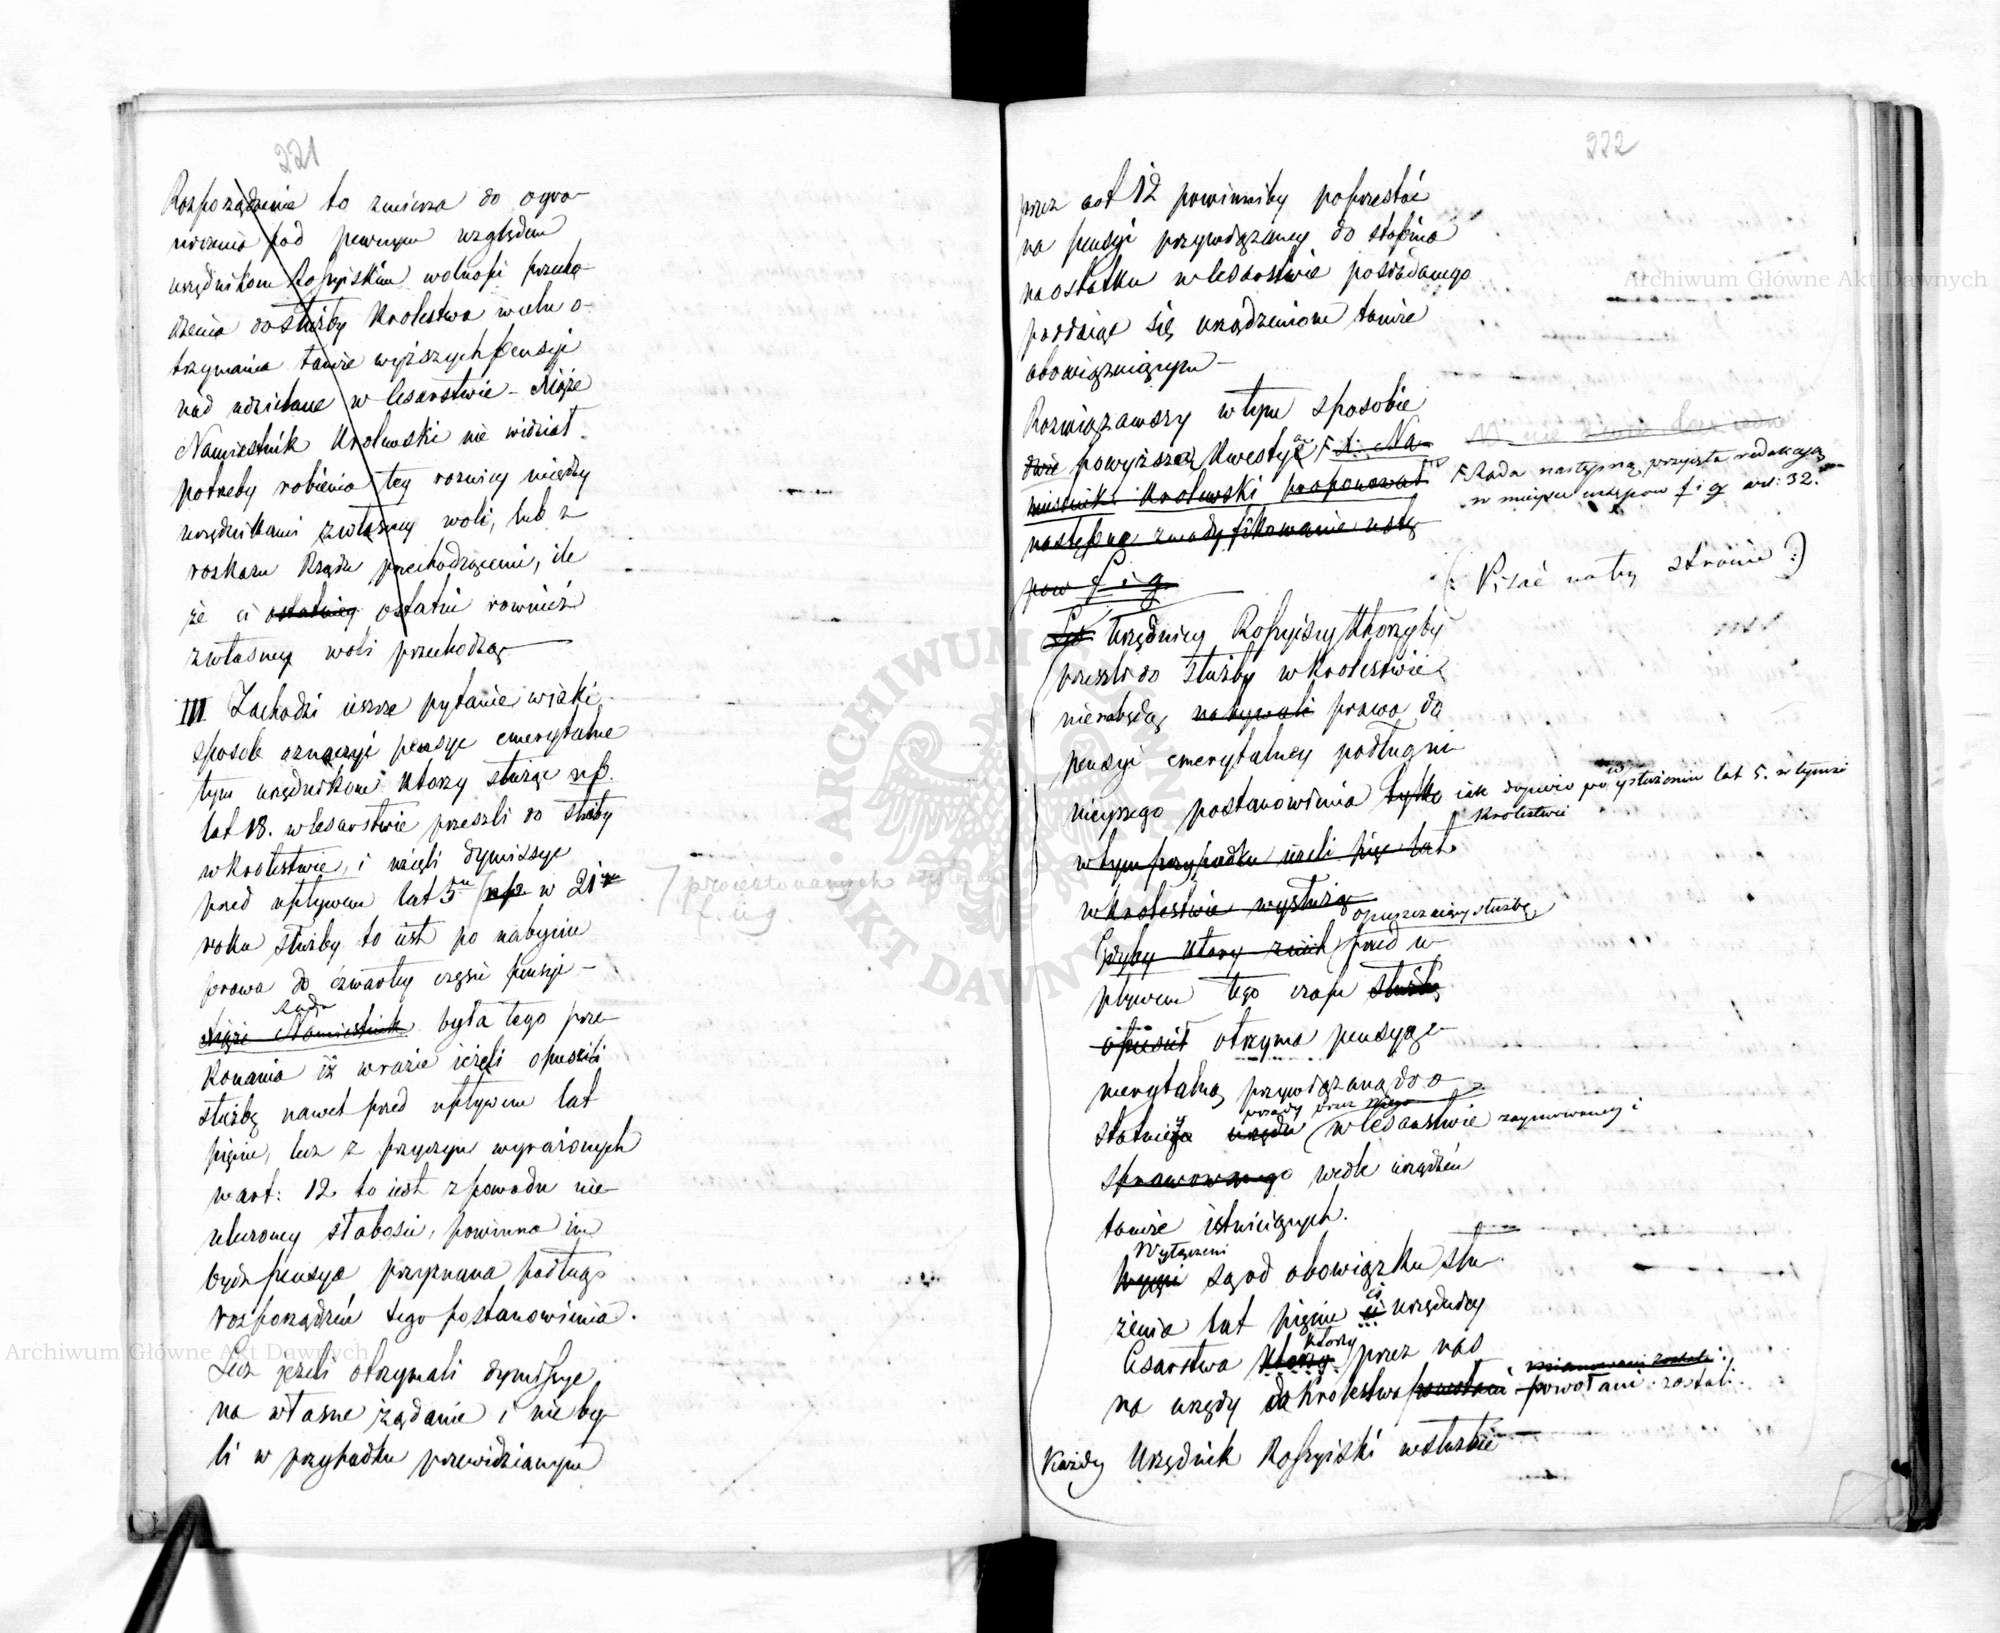 221
Rosporządzenie to zmierza do ogra-
niczenia pod pewnym względem
urzędnikom Rossyiskim wolności przecho-
dzenia do służby Krolestwa wcelu o-
trzymania tamże wyższych pensyi
nad udzielane w Cesarstwie – Xiąże
Namiestnik Krolewski nie widział
potrzeby robienia tey roznicy między
urzędnikami z własney woli, lub z
roskazu Rządu przechodzącemi, ile
że ci ostatniey ostatni rownież
z własney woli przechodzą
III Zachodzi ieszcze pytanie wiaki
sposob oznaczyć pensye emerytalne
tym urzędnikom Ktorzy służąc np.
lat 18. w Cesarstwie przeszli do służby
w Krolestwie, i wzięli dymissye
przed upływem lat 5ciu np. w 21ym
roku służby to iest po nabyciu
prawa do czwartey części pensyi –
Rada
Xiąże Namiestnik była tego prze-
konania iż wrazie ieżeli opuścili
służbę nawet przed upływem lat
pięciu, lecz z przyczyn wyrażonych
w art: 12. to iest z powodu nie-
uleczoney słabości, powinna im
bydź pensya przyznana podług
rosporządzeń tego postanowienia.
Lecz ieżeli otrzymali dymissye
na własne żądanie i nie by-
li w przypadku przewidzianym
proiektowanych
f. i g
222
przez art 12 powinniby poprzestać
na pensyi przywiązaney do stopnia
na ostatku w Cesarstwie posiadanego
podług urządzeniom tamże
obowiązuiącym –
Rozwiązawszy wtym sposobie
dwie powyższą Kwestyę X. Na-
miestnik Krolewski proponował
następne zmodyfikowanie ustę-
pow f i g
F Rada następną przyięła redakcyą
w mieyscu ustępow f i g art: 32.
(: Pisać na tey stronie :)
Urzędnicy Rossyiscy Ktorzyby
przeszli do służby w Krolestwie
nienabędą nabywali prawa do
pensyi emerytalney podług ni-
nieyszego postanowienia tylko iak dopiero po wysłużeniu lat 5. w tymże
Krolestwie
w tym przypadku ieżeli pięć lat
w Krolestwie wysłużą
opuszczaiący służbę
Gdyby Ktory z nich przed u-
pływem tego czasu służbę
opuścił otrzyma pensyą e-
merytalną przywiązaną do o-
posady przez niego
statniey urzędu w Cesarstwie zaymowaney i
sprawowanego wedle urządzeń
tamże istnieiących.
Wyłączeni
Wyięci są od obowiązku słu-
żenia lat pięciu ci urzędnicy
Cesarstwa Ktorzy przez nas
na urzędy do Krolestwa powołani zostali.
mianowani zostali
Każdy Urzędnik Rossyiski w służbie
Archiwum Główne Akt Dawnych
Archiwum Główne Akt Dawnych
ARCHIWUM GŁÓWNE AKT DAWNYCH